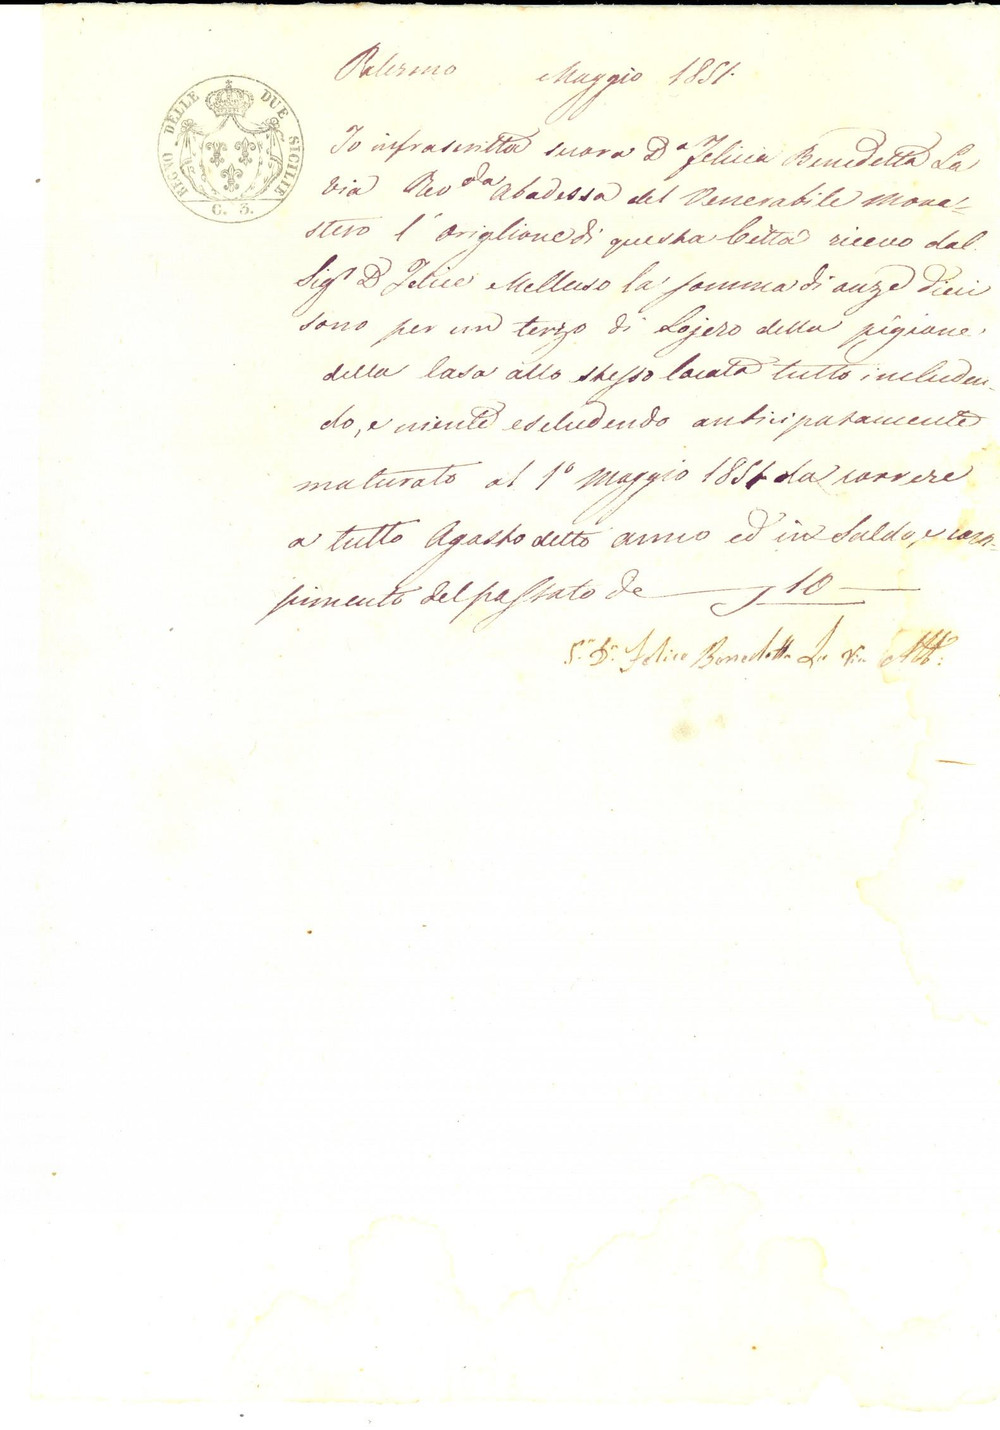 REGNO DELLE DUE SICILIE
G. 3.
Palermo Maggio 1851.
Io infrascritta suora D.a Felicia Benedetta La
via Rev.da Abadessa del Venerabile Mona-
stero l'origlione di questa Città ricevo dal
Sig.r D. Felice Melluso la somma di onze dieci
sono per un terzo di Lojero della pigione
della Casa allo stesso locata tutto includen-
do, e niente escludendo anticipatamente
maturato al 1° Maggio 1851 da correre
a tutto Agosto detto anno ed in Saldo, e com-
pimento del passato de 10
S.r D.a Felice Benedetta La Via Abb.